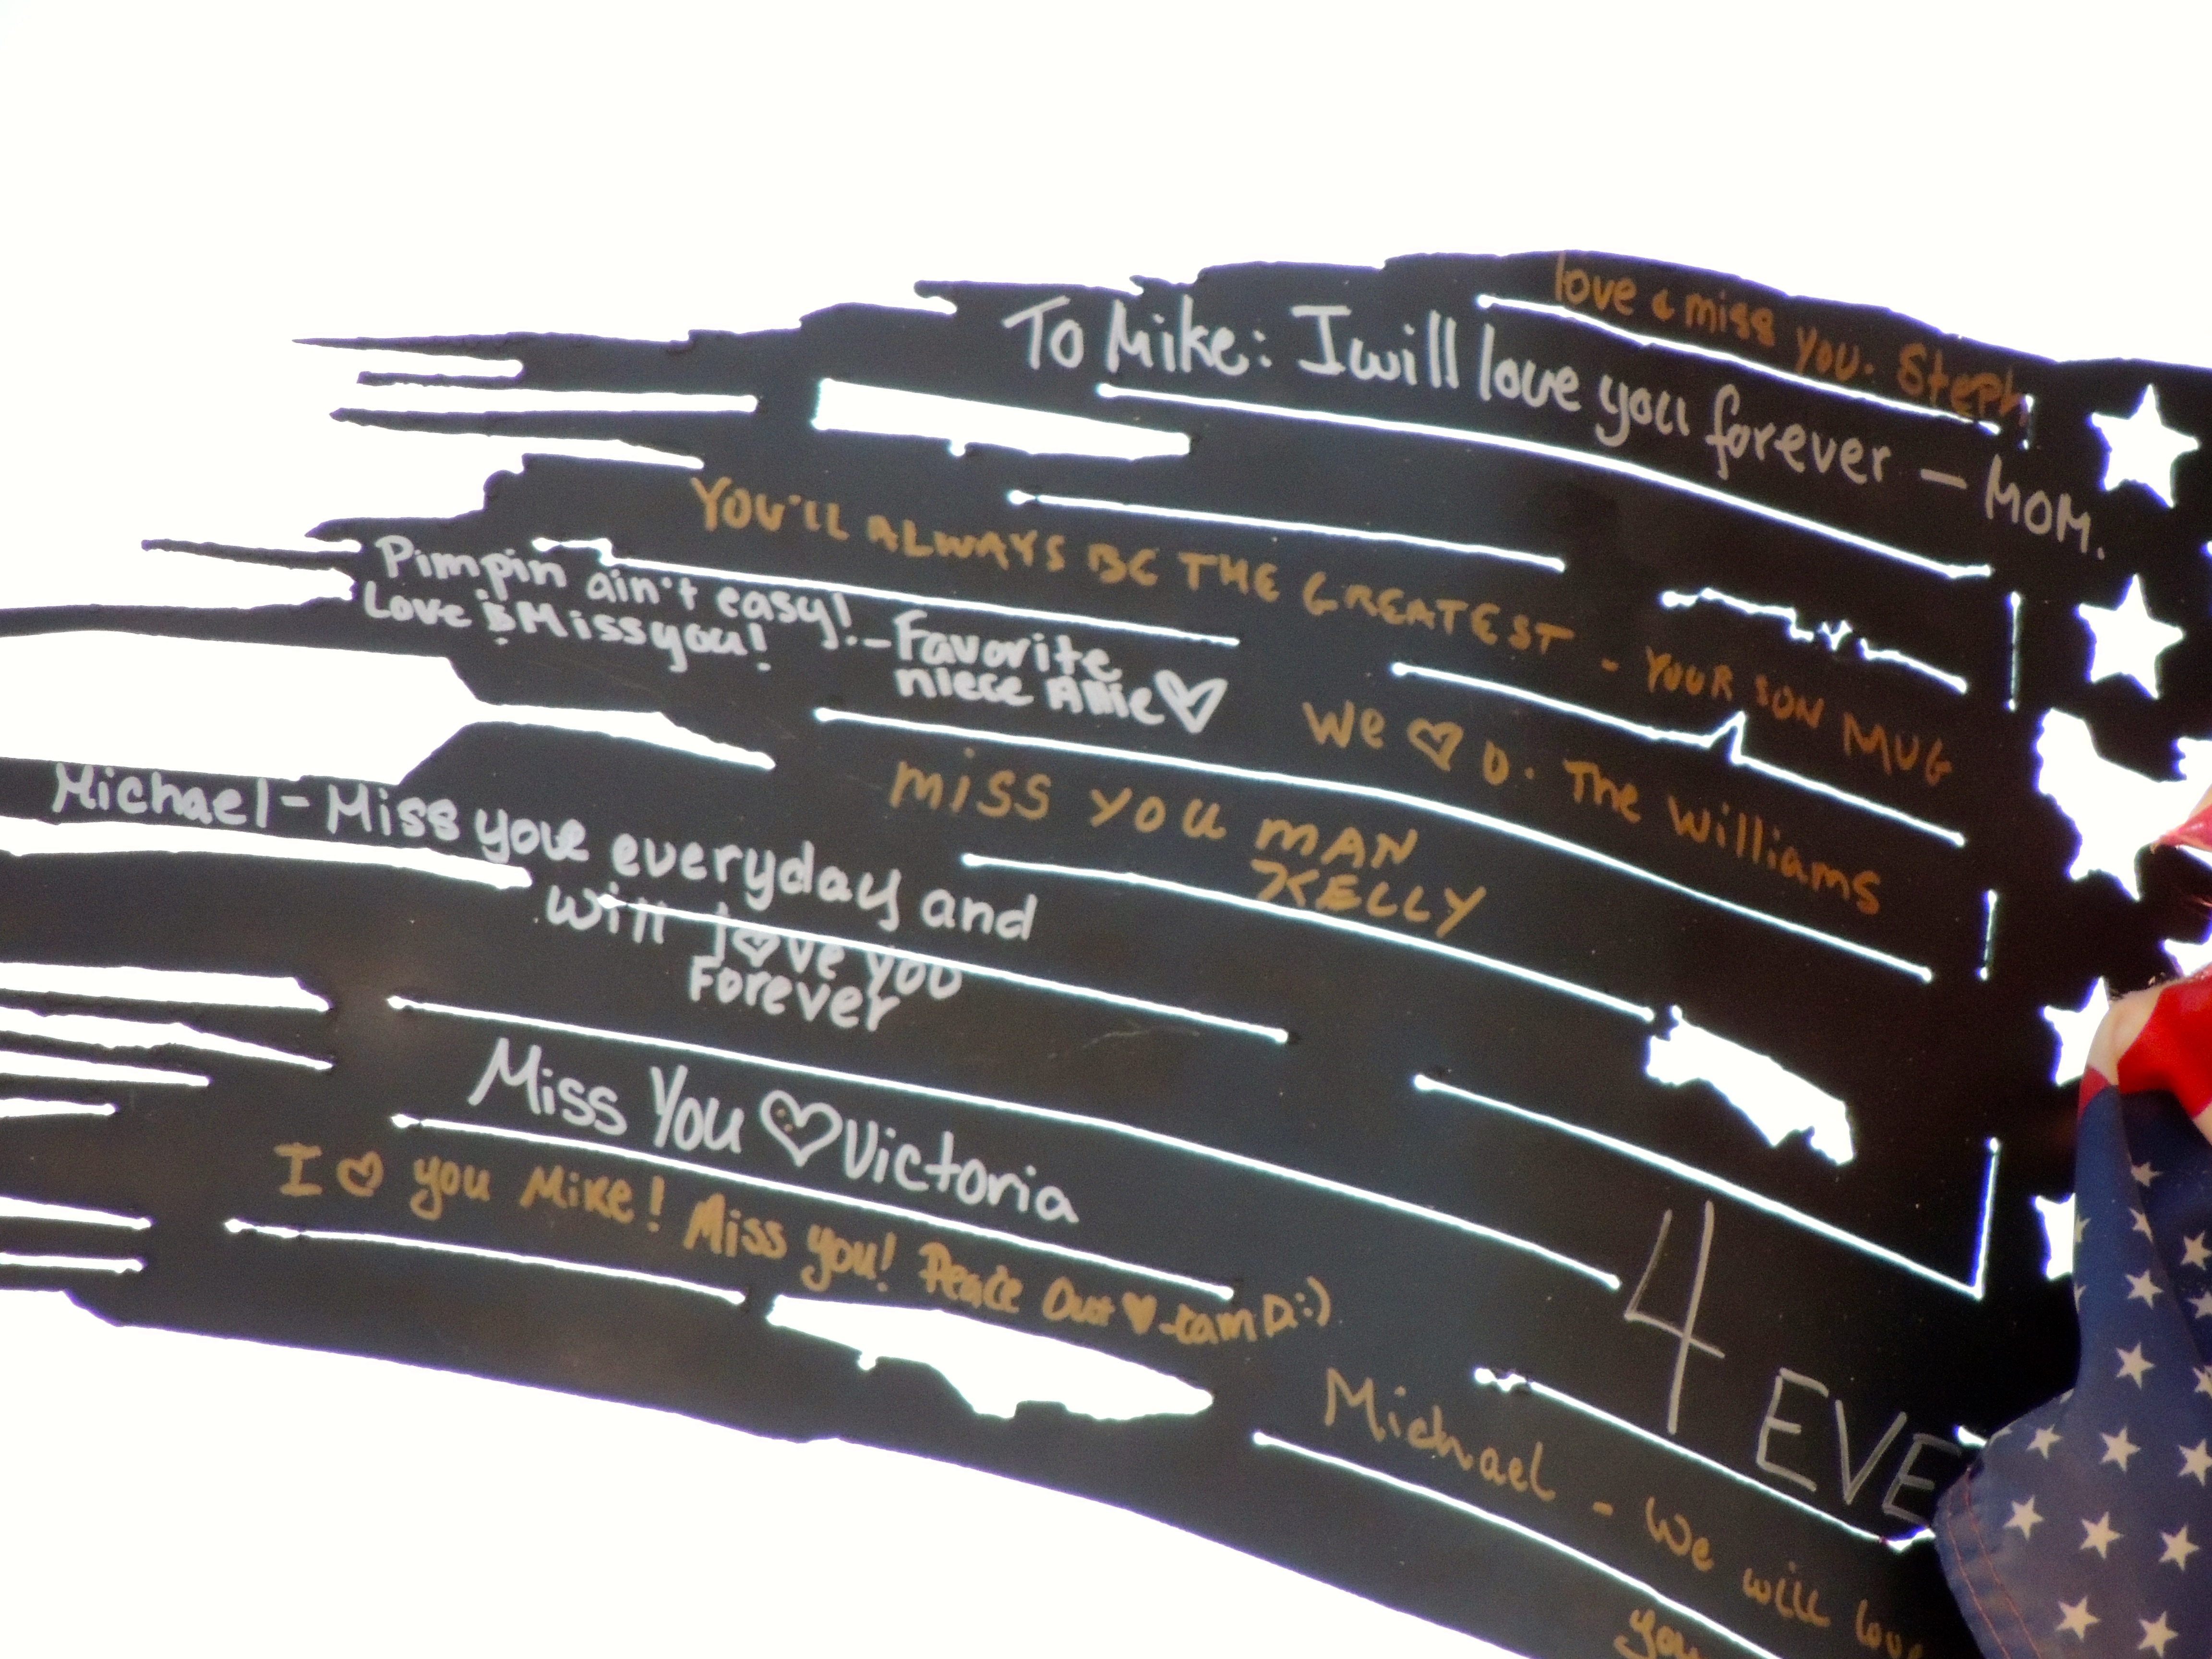 love & miss you. Steph
To Mike: I will love you forever — MOM.
YOU'LL ALWAYS BE THE GREATEST - YOUR SON MUG
Pimpin ain't easy!
Love & Miss you! - Favorite
niece Allie ♡
We ♡ D. The Williams
miss you MAN
KELLY
Michael - Miss you everyday and
will love you
Forever
Miss You ♡ Victoria
I ♡ you Mike! Miss you! Peace Out ♥ -cam D:)
4 EVE
Michael - We will love
you